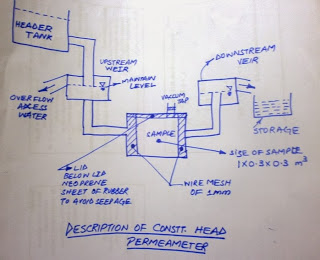 HEADER
TANK
UPSTREAM
WEIR
MAINTAIN
LEVEL
DOWNSTREAM
VEIR
OVERFLOW
ADCESS
WATER
VACUUM
TAP
STORAGE
SAMPLE
SIZE OF SAMPLE
1X0.3X0.3 m³
LID
BELOW LID
NEOPRENE
SHEET OF RUBBER
TO AVOID SEEPAGE.
WIRE MESH
OF 1mm
DESCRIPTION OF CONSTT. HEAD
PERMEAMETER